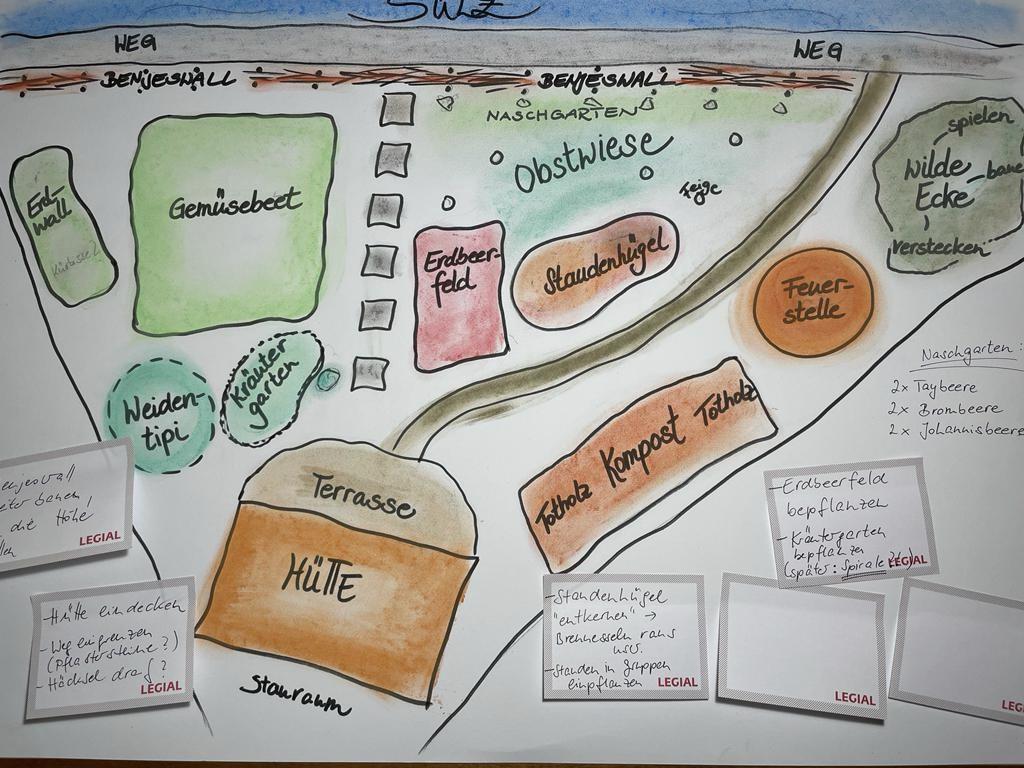 SULZ
WEG
WEG
BENJESWALL
BENJESWALL
NASCHGARTEN
Obstwiese
Feige
spielen
Wilde
Ecke
verstecken
Erd-
wall
Kürbisse?
Gemüsebeet
Erdbeer-
feld
Staudenhügel
Feuer-
stelle
Kräuter
garten
Weiden-
tipi
Naschgarten:
2x Taybeere
2x Brombeere
2x Johannisbeere
Terrasse
HÜTTE
Stauraum
Totholz Kompost Totholz
LEGIAL
- Hütte eindecken
- Weg eingrenzen
(Pflastersteine?)
- Häcksel drauf?
LEGIAL
- Staudenhügel
"entkernen" →
Brennesseln raus
usw.
- Stauden in Gruppen
einpflanzen
LEGIAL
- Erdbeerfeld
bepflanzen
- Kräutergarten
bepflanzen
(später: Spirale
LEGIAL
LEGIAL